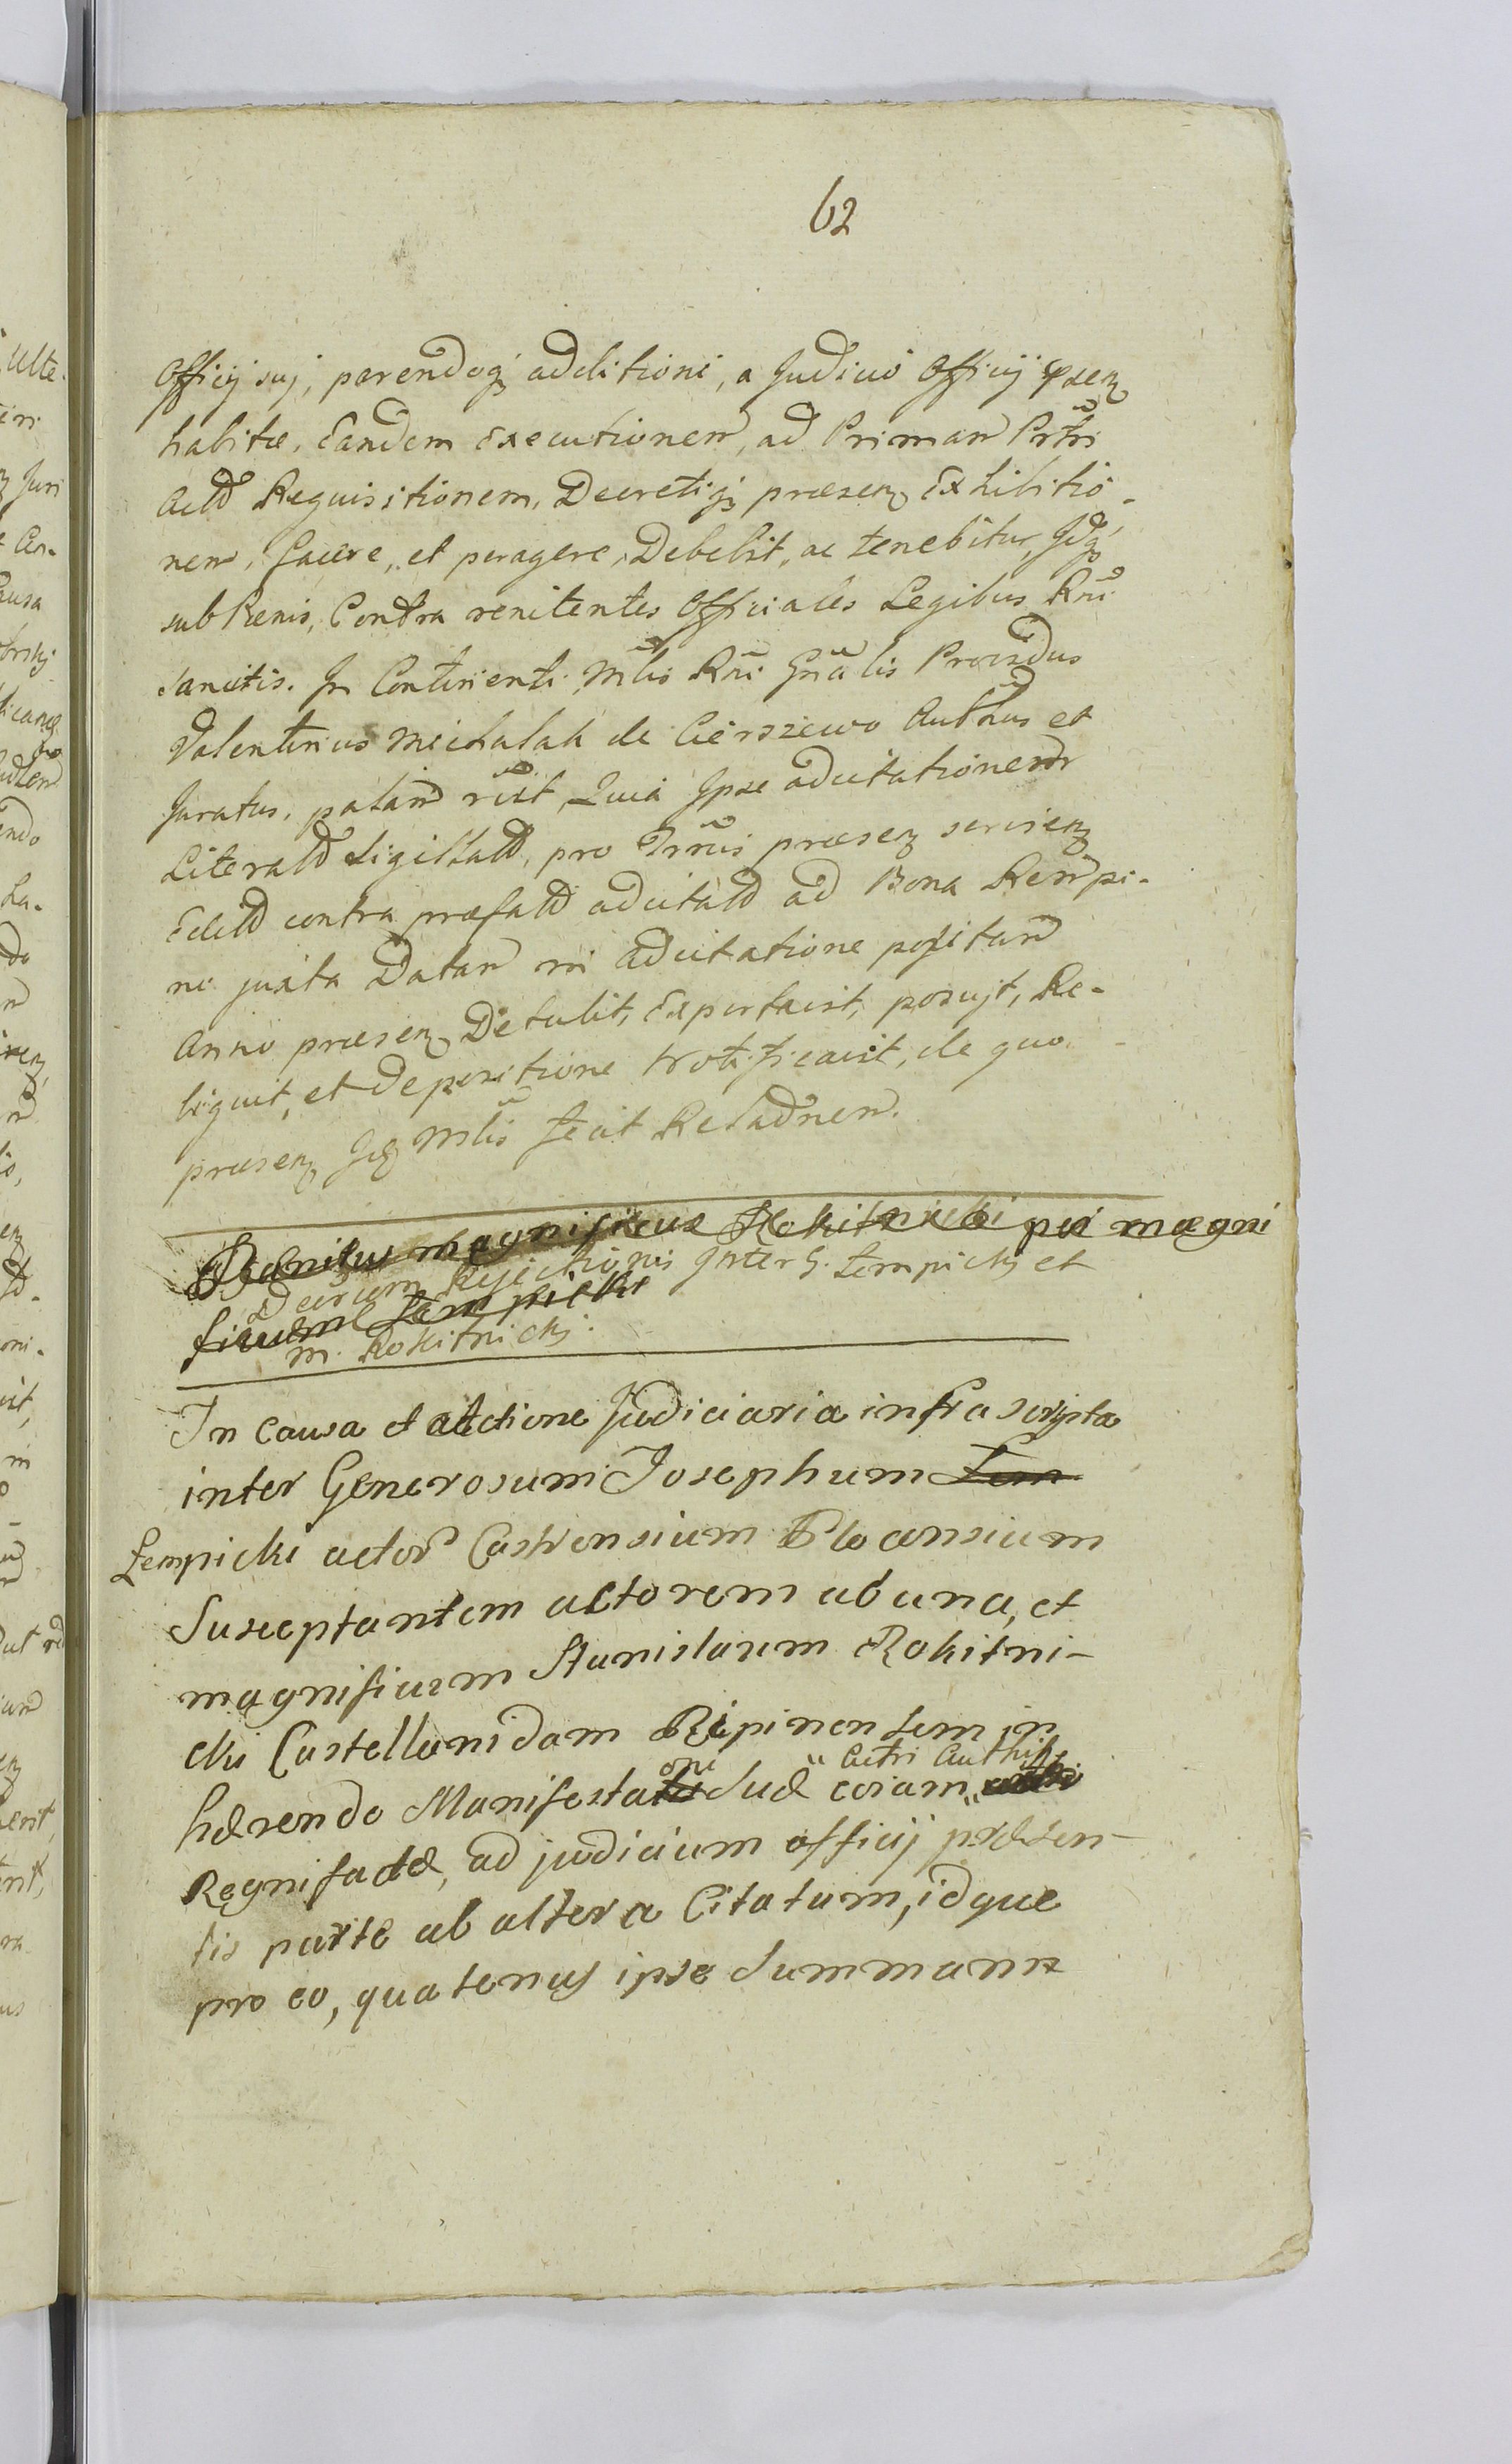 62
Officij suj, parendoq; additioni, a Judicio Officij praesen
habitae, Eandem Executionem, ad Primam Prtis
Requisitionem, Decretiq; praesen Exhibitio-
nem, facere, et peragere, Debebit, ac tenebitur, Idq;
sub Penis, Contra renitentes Officiales Legibus Rni
sancitis. In Continenti Mlis Rni Gnalis Providus
Valentinus Michalak de Cierszewo Authus et
Juratus, palam rblt, Quia Ipse adcitationem
Literald Sigillald, pro Trnis praesen servien
Edild contra praefald adcitald ad Bona Rempi-
ni juxta Datam in adcitatione positam
Anno praesen Detulit, Exportavit, posujt, Re-
liquit, et Depositione Notificavit, de quo
praesen Mlis fecit Reladnem.
magnificus Rokitnicki per magni
Decrum Rejectionis Inter G. Lempickj et
ficum Lempicki
M. Rokitnickj.
In causa et actione Judiciaria infrascripta
inter Generosum Josephum Lem
Lempicki actor Castrensium Plocensium
Susceptantem actorem ab una, et
magnificum Stanislaum Rokitni-
cki Castellanidam Ripinensem in
oni " Actri Authii
hærendo Manifestatis Suæ coram
Regni factæ, ad judicium officij præsen-
tis parte ab altera Citatum, idque
pro eo, quatenus ipse Summam